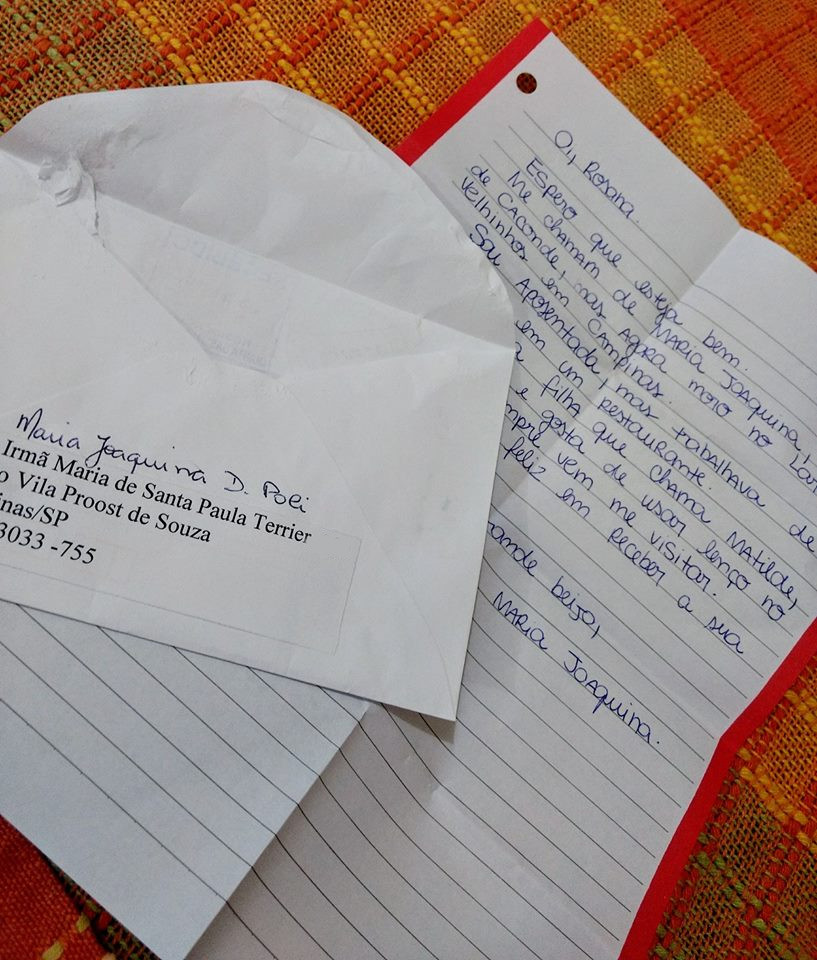 Oi, Rosana.
Espero que esteja bem.
Me chamam de MARIA JOAQUINA,
de CACONDE, mas AGORA moro no Lar
Velhinhos em CAMPINAS.
Sou Aposentada, mas trabalhava de
em um restaurante.
a filha que chama MATILDE,
e gosta de usar lenço no
mpre vem me visitar.
feliz em receber a sua
rande beijo,
MARIA JOAQUINA.
Maria Joaquina D. Poli
Irmã Maria de Santa Paula Terrier
o Vila Proost de Souza
inas/SP
3033 -755